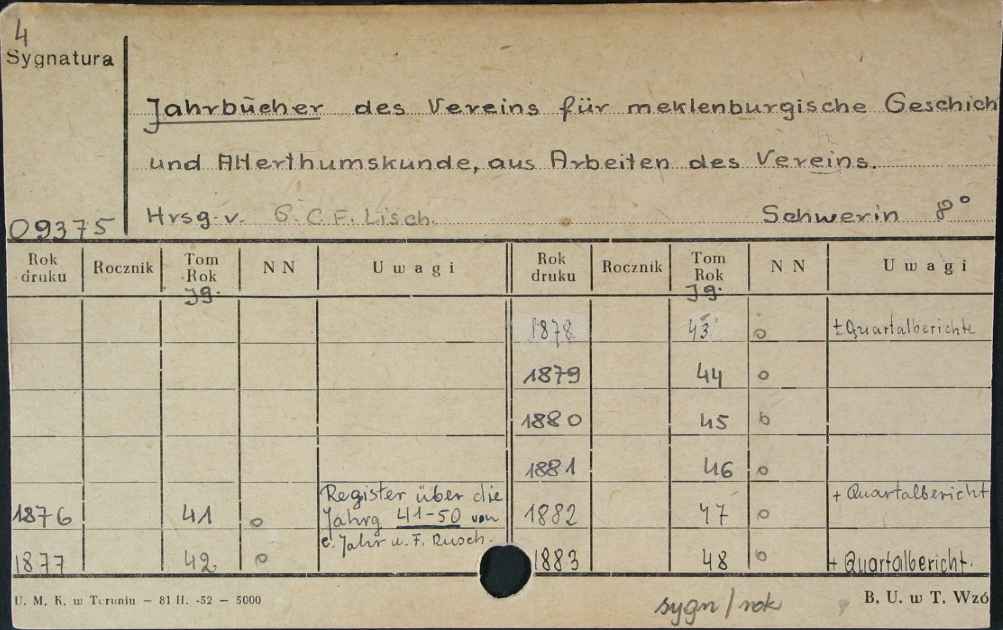 4
Sygnatura
Jahrbücher des Vereins für meklenburgische Geschich
und Alterthumskunde, aus Arbeiten des Vereins.
09375 Hrsg. v. G. C. F. Lisch. Schwerin 8°
Rok druku Rocznik Tom Rok Jg. NN Uwagi Rok druku Rocznik Tom Rok Jg. NN Uwagi
1878 43 o ± Quartalberichte
1879 44 o
1880 45 o
1881 46 o
1876 41 o Register über die Jahrg 41-50 von 1882 47 o + Quartalbericht
1877 42 o u. F. Rusch. 1883 48 o + Quartalbericht.
U. M. K. w Toruniu – 81 H. -52 – 5000 sygn/rok B. U. w T. Wzó